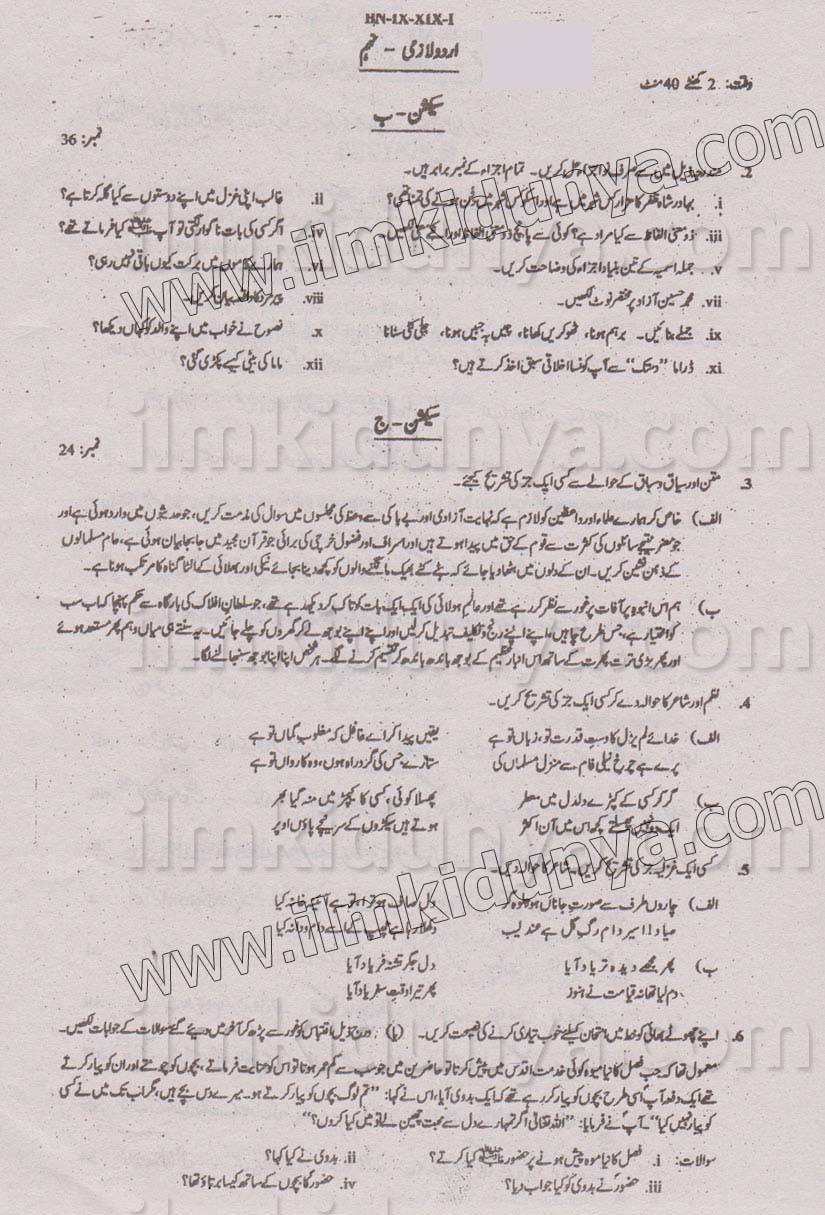 BN-IX-XIX-I
اردو لازمی - نہم
وقت: 2 گھنٹے 40 منٹ
سیکشن - ب
نمبر: 36
2. مندرجہ ذیل میں سے صرف نو اجزاء حل کریں۔ تمام اجزاء کے نمبر برابر ہیں۔
i. بہادر شاہ ظفر کا مزار کس شہر میں ہے اور اسے کس شہر میں دفن ہونے کی تمنا تھی؟
ii. غالب اپنی غزل میں اپنے دوستوں سے کیا گلہ کرتا ہے؟
iii. ذومعنی الفاظ سے کیا مراد ہے؟ کوئی سے پانچ ذومعنی الفاظ اور انکے معنی لکھیں۔
iv. اگر کسی کی بات ناگوار لگتی تو آپ ﷺ کیا فرماتے تھے؟
v. جملہ اسمیہ کے تین بنیادی اجزاء کی وضاحت کریں۔
vi. ہمارے کاموں میں برکت کیوں باقی نہیں رہی؟
vii. محمد حسین آزاد پر مختصر نوٹ لکھیں۔
viii. بیان کریں۔
ix. جملے بنائیں۔ برہم ہونا، ٹھوکریں کھانا، چیں بہ جبیں ہونا، جلی کٹی سنانا
x. نصوح نے خواب میں اپنے والد کو کہاں دیکھا؟
xi. ڈراما "دستک" سے آپ کونسا اخلاقی سبق اخذ کرتے ہیں؟
xii. ماما کی بیٹی کیسے پکڑی گئی؟
سیکشن - ج
نمبر: 24
3. متن اور سیاق و سباق کے حوالے سے کسی ایک جز کی تشریح کیجئے۔
الف) خاص کر ہمارے علماء اور واعظین کو لازم ہے کہ نہایت آزادی اور بے باکی سے وعظ کی مجلسوں میں سوال کی مذمت کریں، جو حدیثوں میں وارد ہوئی ہے اور
جو مضر نتیجے سائلوں کی کثرت سے قوم کے حق میں پیدا ہوتے ہیں اور اسراف اور فضول خرچی کی برائی جو قرآن مجید میں جا بجا بیان ہوئی ہے، عام مسلمانوں
کے ذہن نشین کریں۔ ان کے دلوں میں بٹھا دیا جائے کہ ہٹے کٹے بھیک مانگنے والوں کو کچھ دینا بجائے نیکی اور بھلائی کے الٹا گناہ کا مرتکب ہونا ہے۔
ب) ہم اس انبوہ پر آفات پر غور سے نظر کر رہے تھے اور عالم ہولائی کی ایک ایک بات کو تاک کر دیکھ رہے تھے، جو سلطان افلاک کی بارگاہ سے حکم پہنچا کہ اب سب
کو اختیار ہے، جس طرح چاہیں، اپنے اپنے رنج و تکلیف تبدیل کر لیں اور اپنے اپنے بوجھ لے کر گھروں کو چلے جائیں۔ یہ سنتے ہی میاں وہم پھر مستعد ہوئے
اور پھر بڑی ترت پھرت کے ساتھ اس انبار عظیم کے بوجھ باندھ باندھ کر تقسیم کرنے لگے۔ ہر شخص اپنا اپنا بوجھ سنبھالنے لگا۔
4. نظم اور شاعر کا حوالہ دے کر کسی ایک جز کی تشریح کریں۔
الف) خدائے لم یزل کا دستِ قدرت تو، زباں تو ہے یقیں پیدا کر اے غافل کہ مغلوبِ گماں تو ہے
پرے ہے چرخِ نیلی فام سے منزل مسلماں کی ستارے جس کی گردِ راہ ہوں، وہ کارواں تو ہے
ب) گر کر کسی کے کپڑے دلدل میں ہیں معطر پھسلا کوئی، کسی کا کیچڑ میں منہ گیا بھر
ایک دو نہیں پھسلتے کچھ اس میں آن اکثر ہوتے ہیں سیکڑوں کے سر نیچے پاؤں اوپر
5. کسی ایک غزلیہ جز کی تشریح کریں۔ شاعر کا حوالہ دیں۔
الف) چاروں طرف سے صورتِ جاناں ہو جلوہ گر دل صاف ہو ترا تو ہے آئینہ خانہ کیا
صیاد! اسیر دام رگِ گل ہے عندلیب دکھلا رہا ہے چھپ کے اسے دام و دانہ کیا
ب) پھر مجھے دیدۂ تر یاد آیا دل جگر تشنۂ فریاد آیا
دم لیا تھا نہ قیامت نے ہنوز پھر ترا وقتِ سفر یاد آیا
6. اپنے چھوٹے بھائی کو خط میں امتحان کیلئے خوب تیاری کرنے کی نصیحت کریں۔ (یا) درج ذیل اقتباس کو غور سے پڑھ کر آخر میں دیئے گئے سوالات کے جوابات لکھیں۔
معمول تھا کہ جب فصل کا نیا میوہ کوئی خدمت اقدس میں پیش کرتا تو حاضرین میں جو سب سے کم عمر ہوتا تو اس کو عنایت فرماتے، بچوں کو چومتے اور ان کو پیار کرتے
تھے ایک دفعہ آپؐ اسی طرح بچوں کو پیار کر رہے تھے کہ ایک بدوی آیا، اس نے کہا: "تم لوگ بچوں کو پیار کرتے ہو۔ میرے دس بچے ہیں، مگر اب تک میں نے کسی
کو پیار نہیں کیا"۔ آپؐ نے فرمایا: "اللہ تعالیٰ اگر تمہارے دل سے محبت چھین لے تو میں کیا کروں؟"
سوالات: i. فصل کا نیا میوہ پیش ہونے پر حضور ﷺ کیا کرتے؟ ii. بدوی نے کیا کہا؟
iii. حضورؐ نے بدوی کو کیا جواب دیا؟ iv. حضورؐ کا بچوں کے ساتھ کیسا برتاؤ تھا؟
www.ilmkidunya.com
ilmkidunya.com
ilmkidunya.com
ilmkidunya.com
ilmkidunya.com
www.ilmkidunya.com
ilmkidunya.com